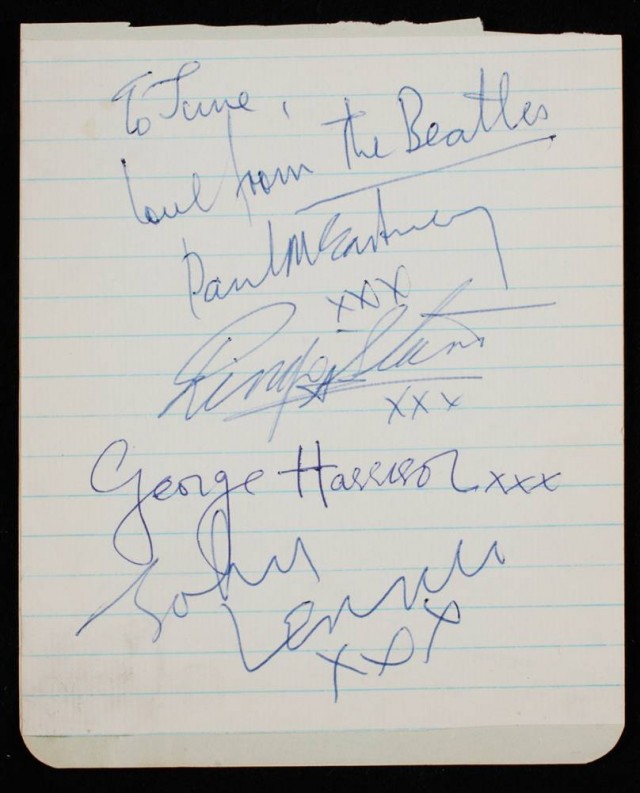 To June,
love from The Beatles
Paul McCartney
xxx
Ringo Starr
xxx
George Harrison xxx
John Lennon
xxx